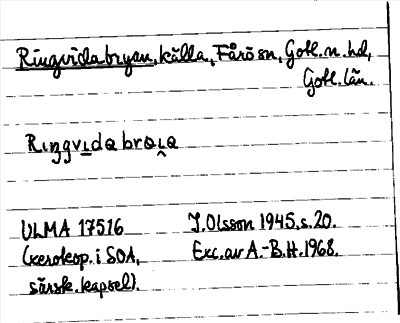 Ringvidabryan, källa, Fårö sn, Gotl. n. hd,
Gotl. län.
Rıŋgvıdabrɑı̯ɑ
ULMA 17516
(xerokop. i SOA,
särsk. kapsel).
J. Olsson 1945. s. 20.
Exc. av A.-B. H. 1968.